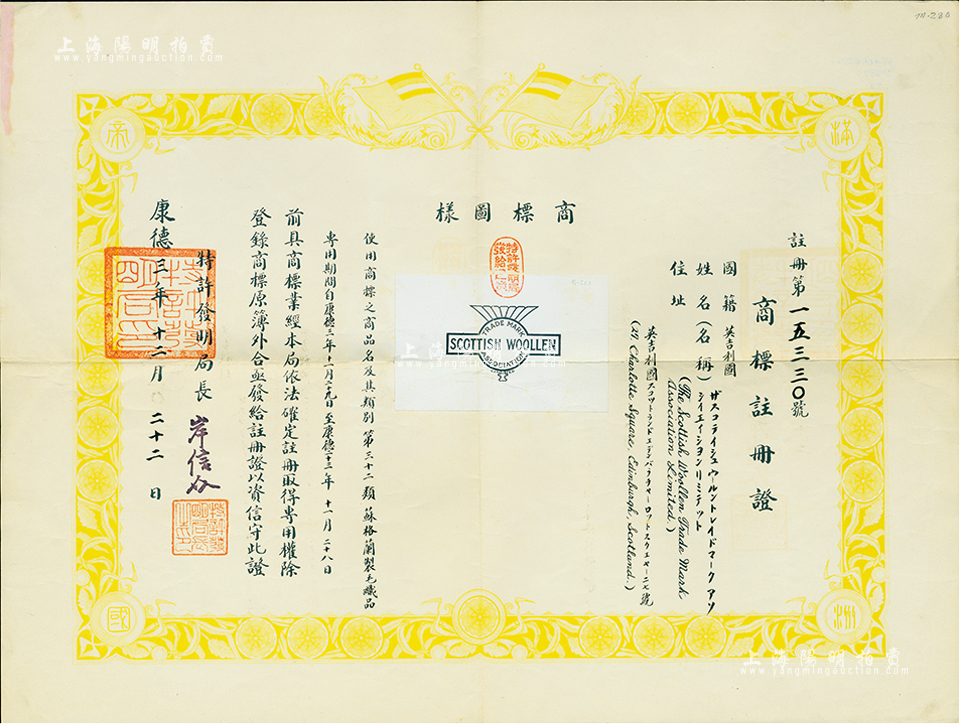 上海陽明拍賣
www.yangmingauction.com
78.280
滿
洲
帝
國
註冊第一五三三〇號
商標註冊證
國籍 英吉利國
姓名(名稱) ザスコテイシユウールントレイドマークアソ
シイエイシヨンリミテツド
(The Scottish Woollen Trade Mark
Association Limited.)
住址 英吉利國スコツトランドエデンバラチヤーロツトスクエヤー二七號
(27 Charlotte Square, Edinburgh, Scotland.)
商標圖樣
TRADE MARK
SCOTTISH WOOLLEN
ASSOCIATION
使用商標之商品名及其類別 第三十二類 蘇格蘭製毛織品
專用期間自康德三年十一月二十九日至康德二十三年十一月二十八日
前具商標業經本局依法確定註冊取得專用權除
登錄商標原簿外合亟發給註冊證以資信守此證
特許發明局長 岸信介
康德三年十二月二十二日
特許發明局長之印
上海陽明拍賣
www.yangmingauction.com
上海陽明拍賣
www.yangmingauction.com